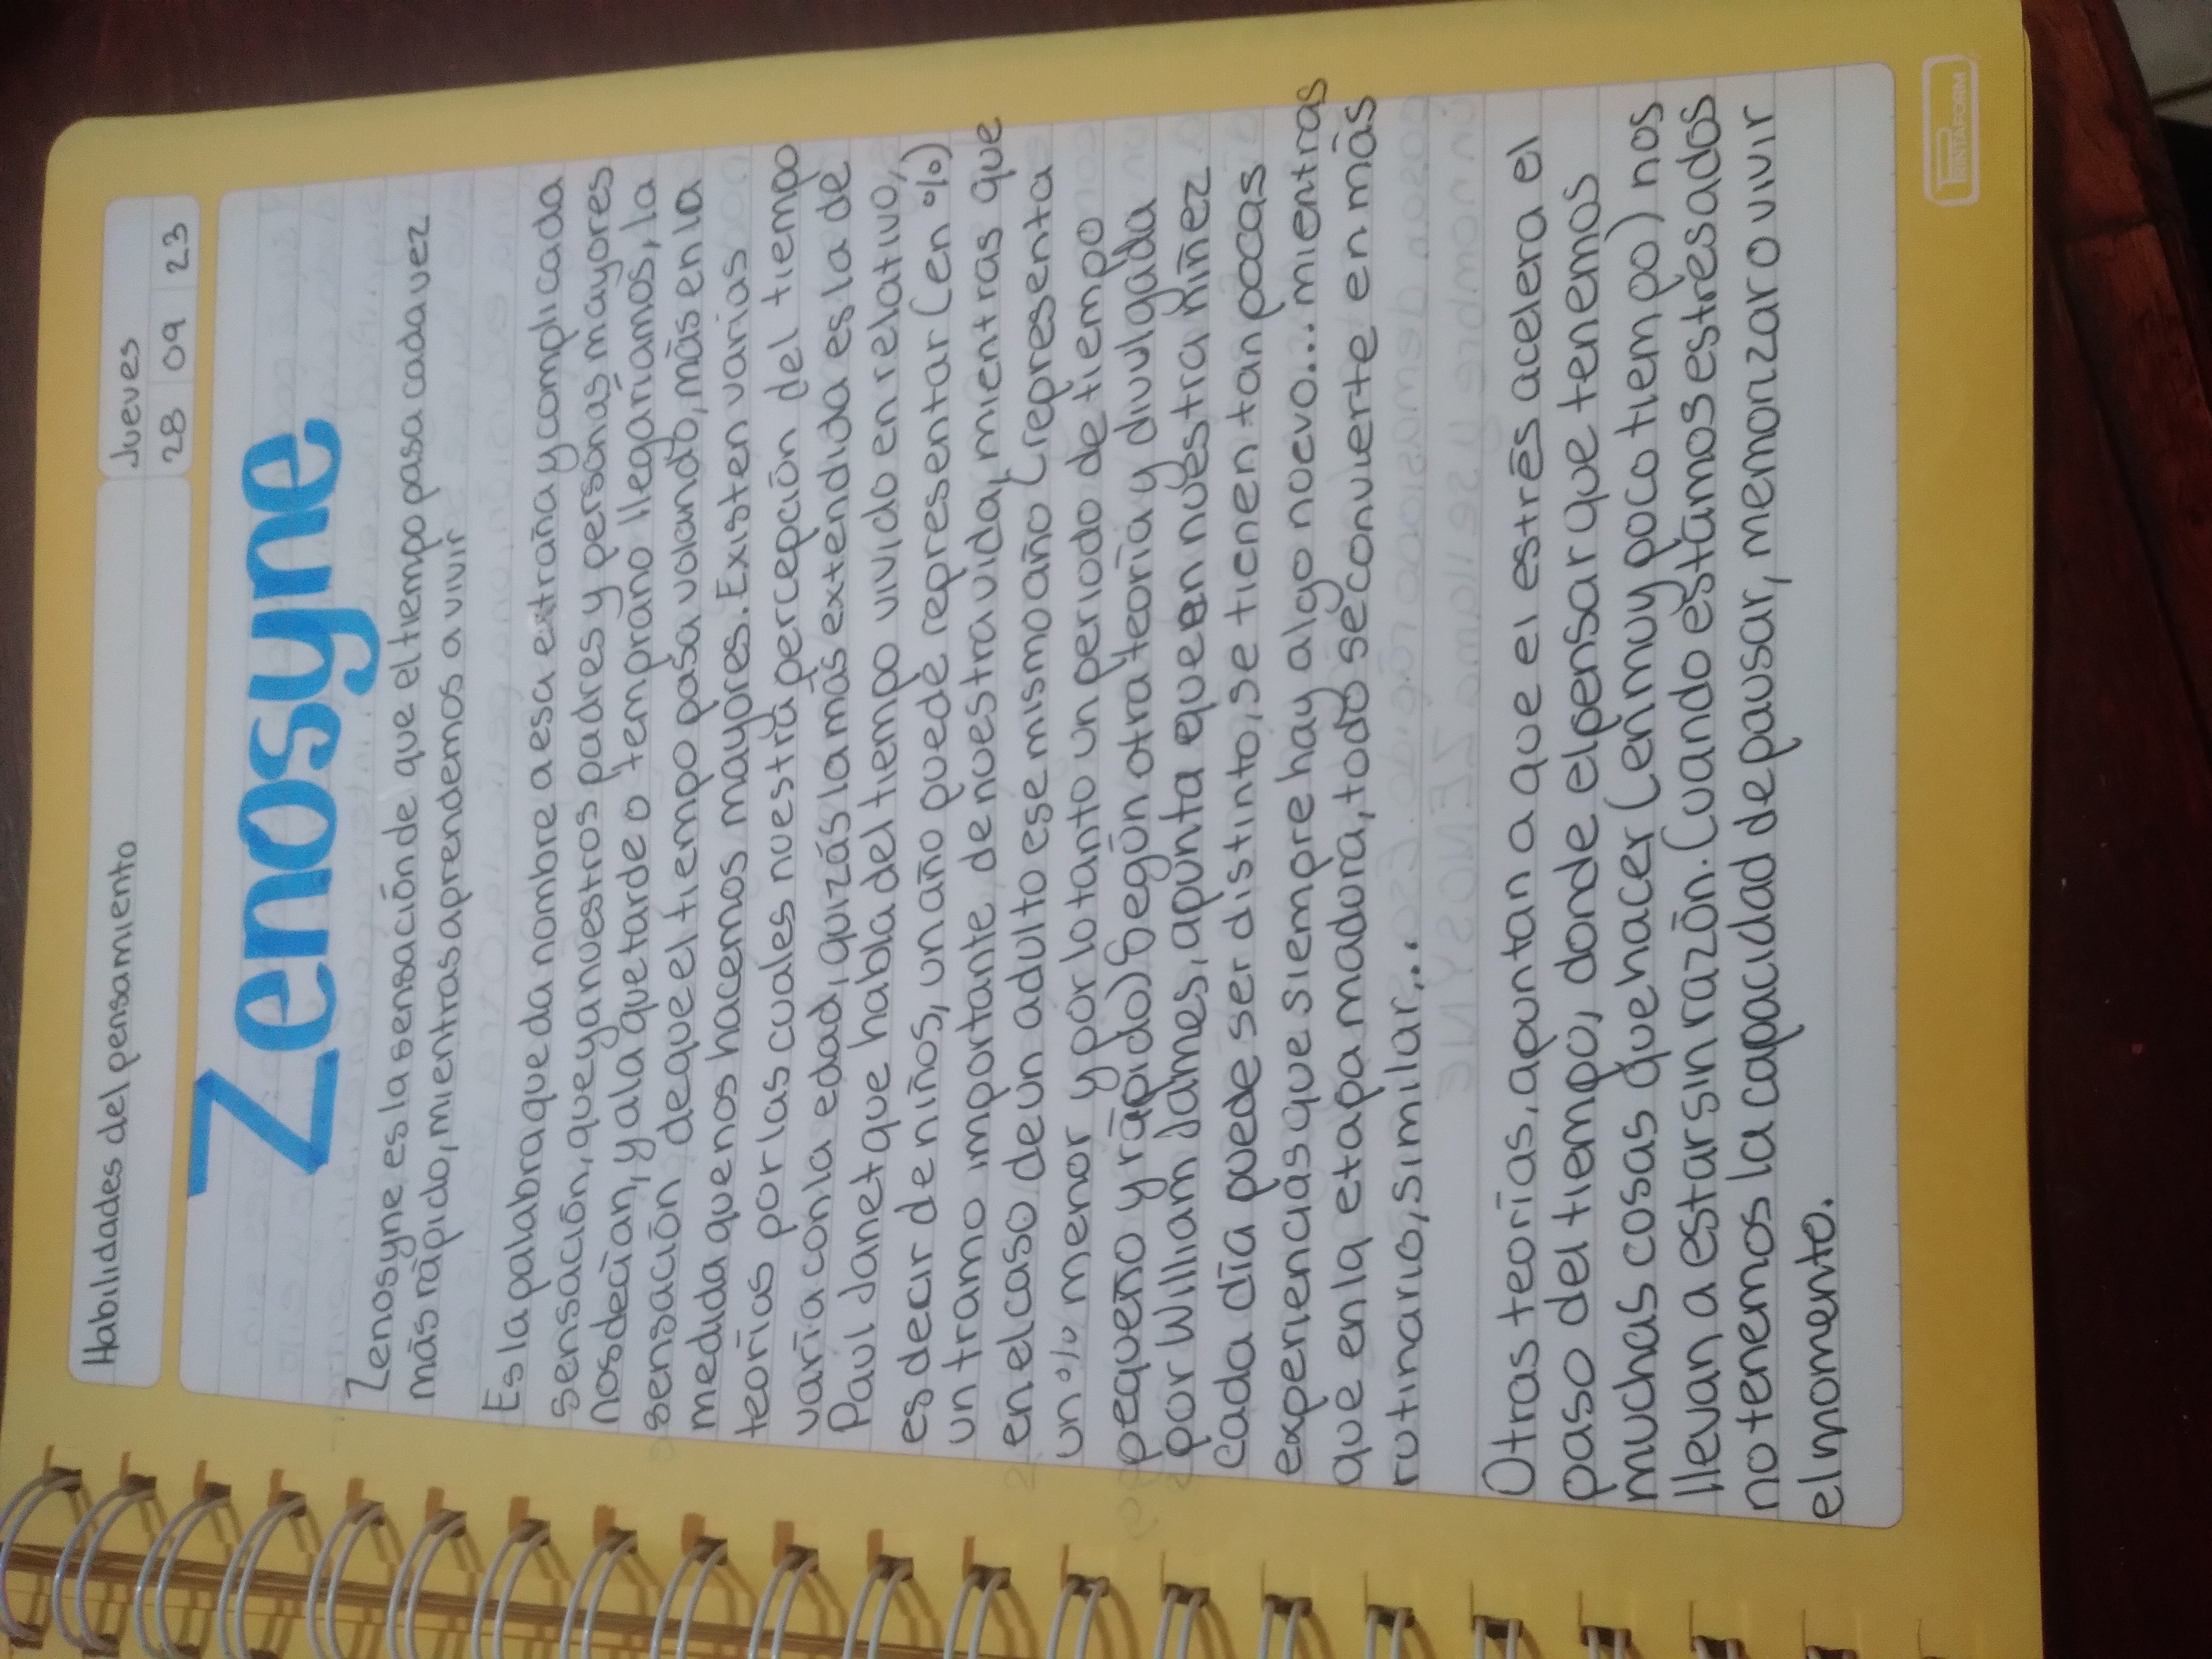 Habilidades del pensamiento
Jueves
28 09 23
Zenosyne
Zenosyne, es la sensación de que el tiempo pasa cada vez
más rápido, mientras aprendemos a vivir
Es la palabra que da nombre a esa extraña y complicada
sensación, que ya nuestros padres y personas mayores
nos decían, y a la que tarde o temprano llegaríamos, la
sensación de que el tiempo pasa volando, más en la
medida que nos hacemos mayores. Existen varias
teorías por las cuales nuestra percepción del tiempo
varía con la edad, quizás la más extendida es la de
Paul Janet que habla del tiempo vivido en relativo,
es decir de niños, un año puede representar (en %)
un tramo importante de nuestra vida, mientras que
en el caso de un adulto ese mismo año (representa
un % menor y por lo tanto un periodo de tiempo
pequeño y rápido) Según otra teoría y divulgada
por William James, apunta que en nuestra niñez
cada día puede ser distinto, se tienen tan pocas
experiencias que siempre hay algo nuevo... mientras
que en la etapa madura, todo se convierte en más
rutinario, similar...
Otras teorías, apuntan a que el estrés acelera el
paso del tiempo, donde el pensar que tenemos
muchas cosas que hacer (en muy poco tiempo) nos
llevan a estar sin razón. Cuando estamos estresados
no tenemos la capacidad de pausar, memorizar o vivir
el momento.
PRINTAFORM